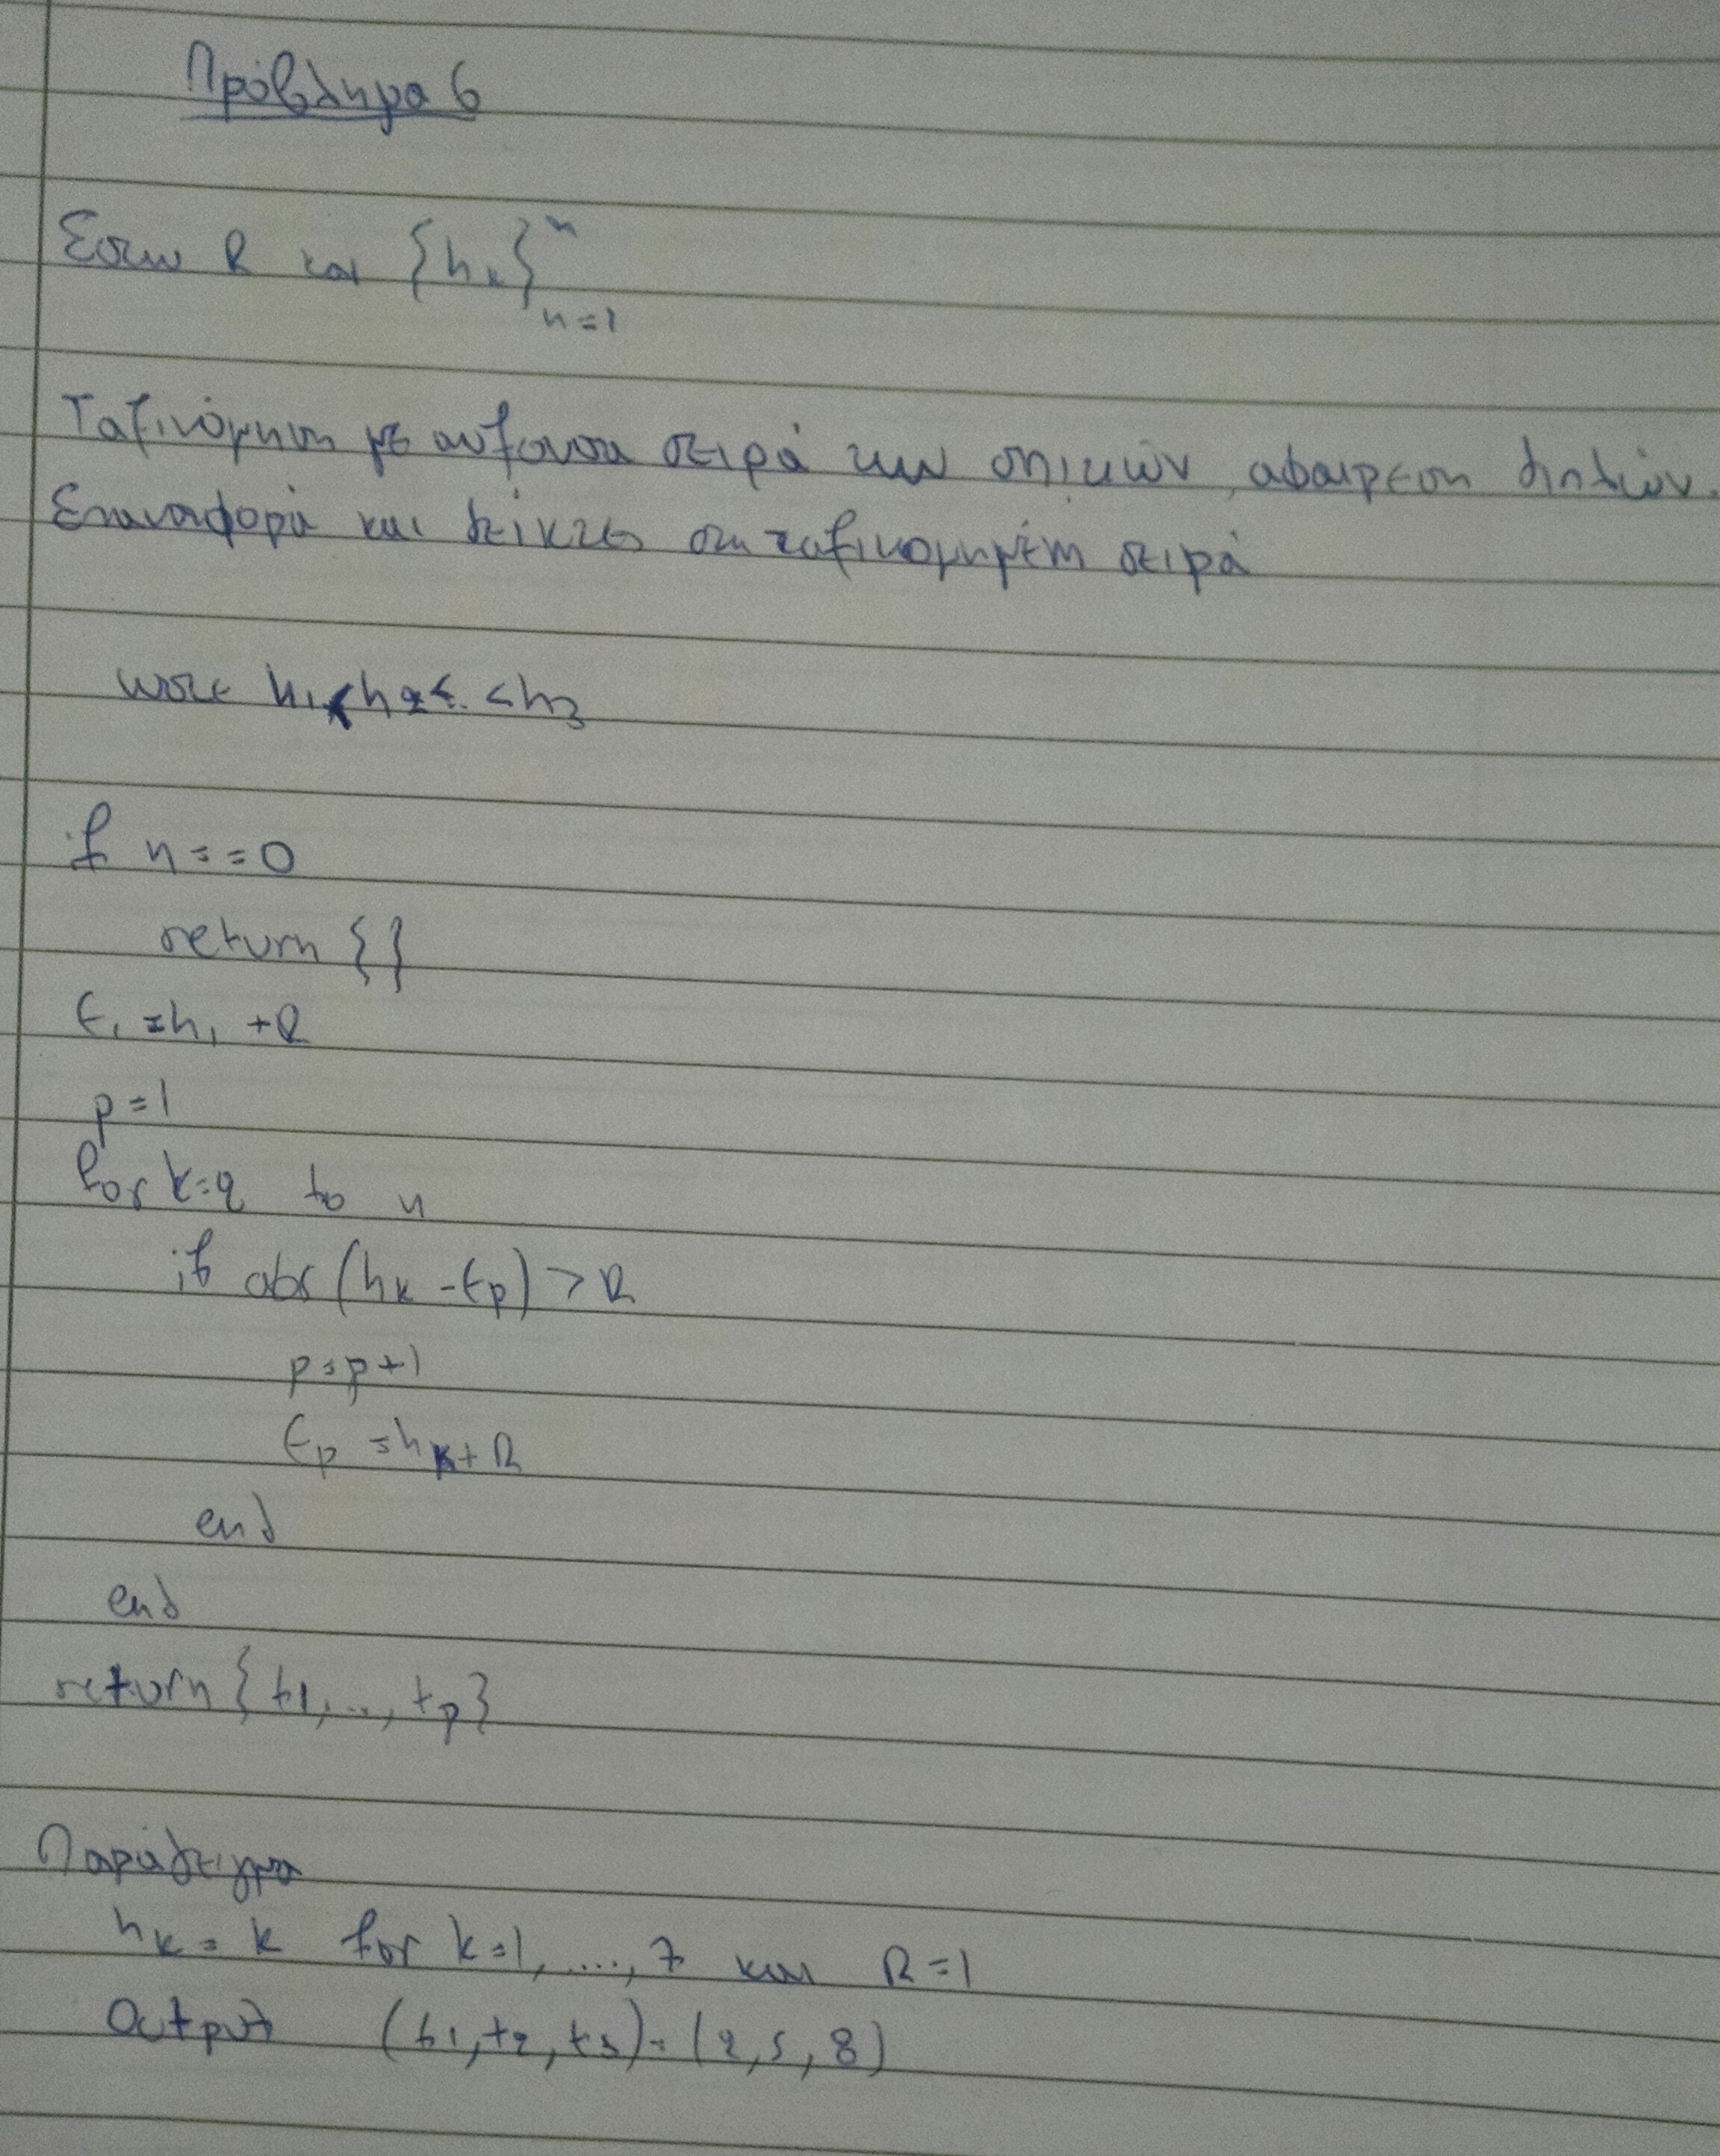 Πρόβλημα 6
Έστω R και {hκ}ⁿ n=1
Ταξινόμηση με αυξουσα σειρά των σπιτιών, αφαιρεση διπλών.
Επαναφορά και δείκτες στη ταξινομημένη σειρά
ωστε h₁<h₂<.<h₃
if n==0
return {}
t₁=h₁+R
p=1
for k=2 to n
if abs(hk-tp)>R
p=p+1
tp=hk+R
end
end
return{t1,..,tp}
Παράδειγμα
hk=k for k=1,....,7 και R=1
Output (t1,t2,t3)=(2,5,8)